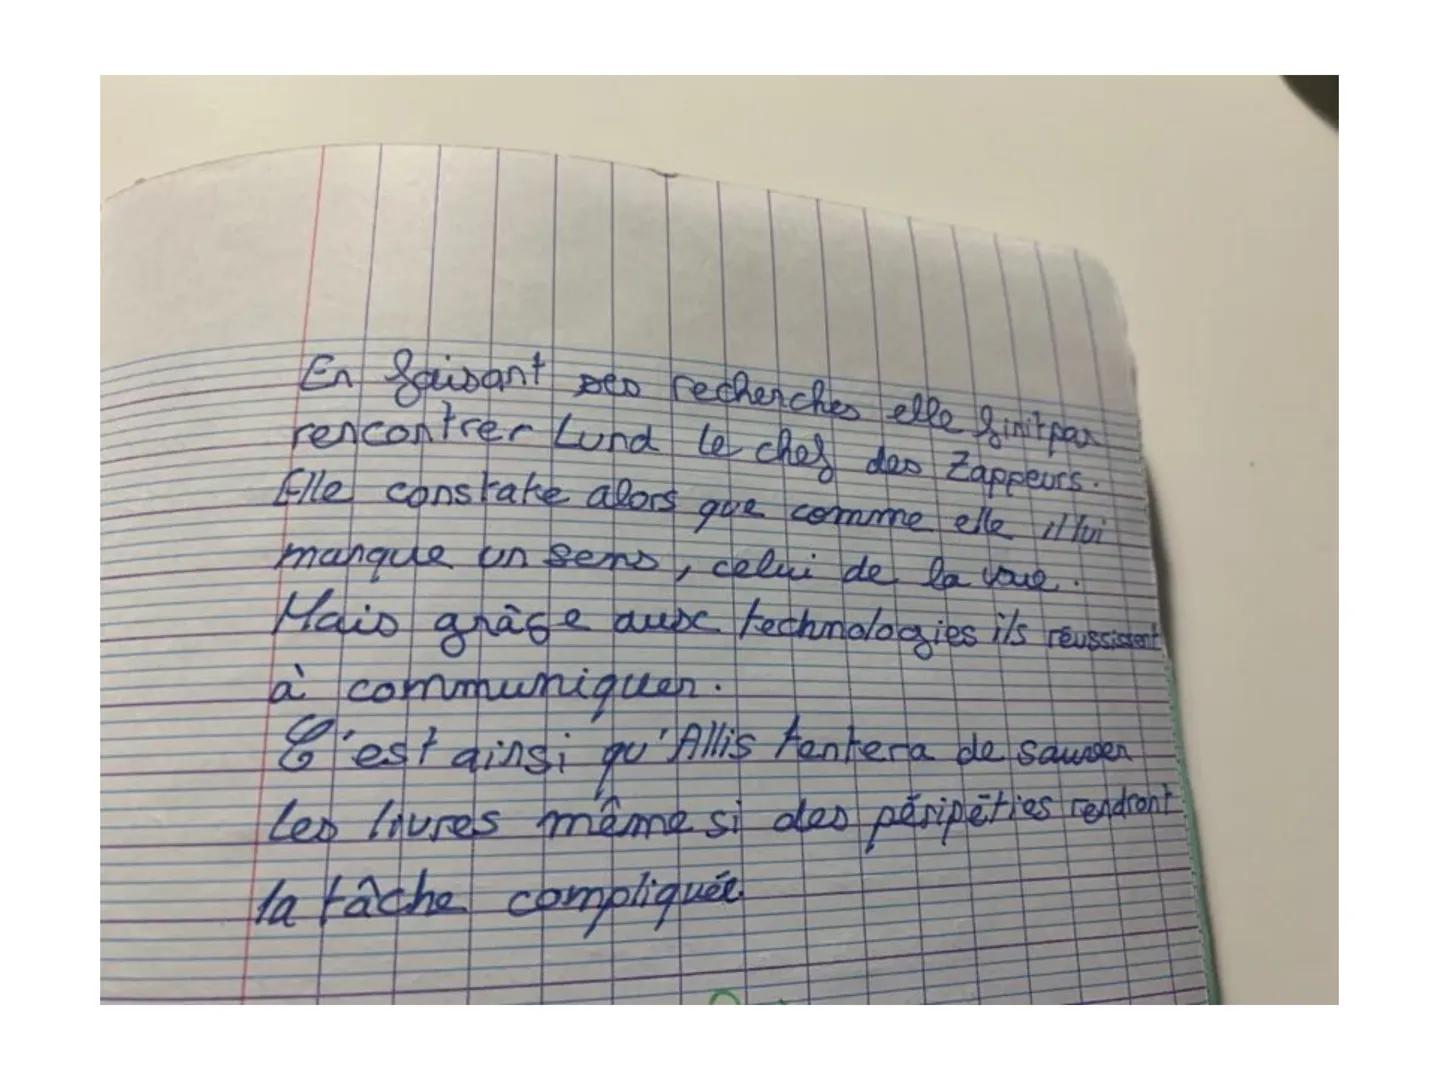 En faisant ses recherches elle finit par
rencontrer Lund le chef des Zappeurs.
Elle constate alors que comme elle il lui
manque un sens, celui de la vue.
Mais grâce aux technologies ils réussissent
à communiquer.
C'est ainsi qu'Allis tentera de sauver
les livres même si des péripéties rendront
la tâche compliquée